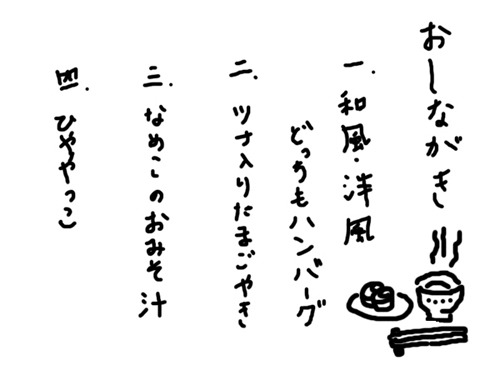 おしながき
一.和風・洋風
どっちもハンバーグ
二.ツナ入りたまごやき
三.なめこのおみそ汁
四.ひややっこ